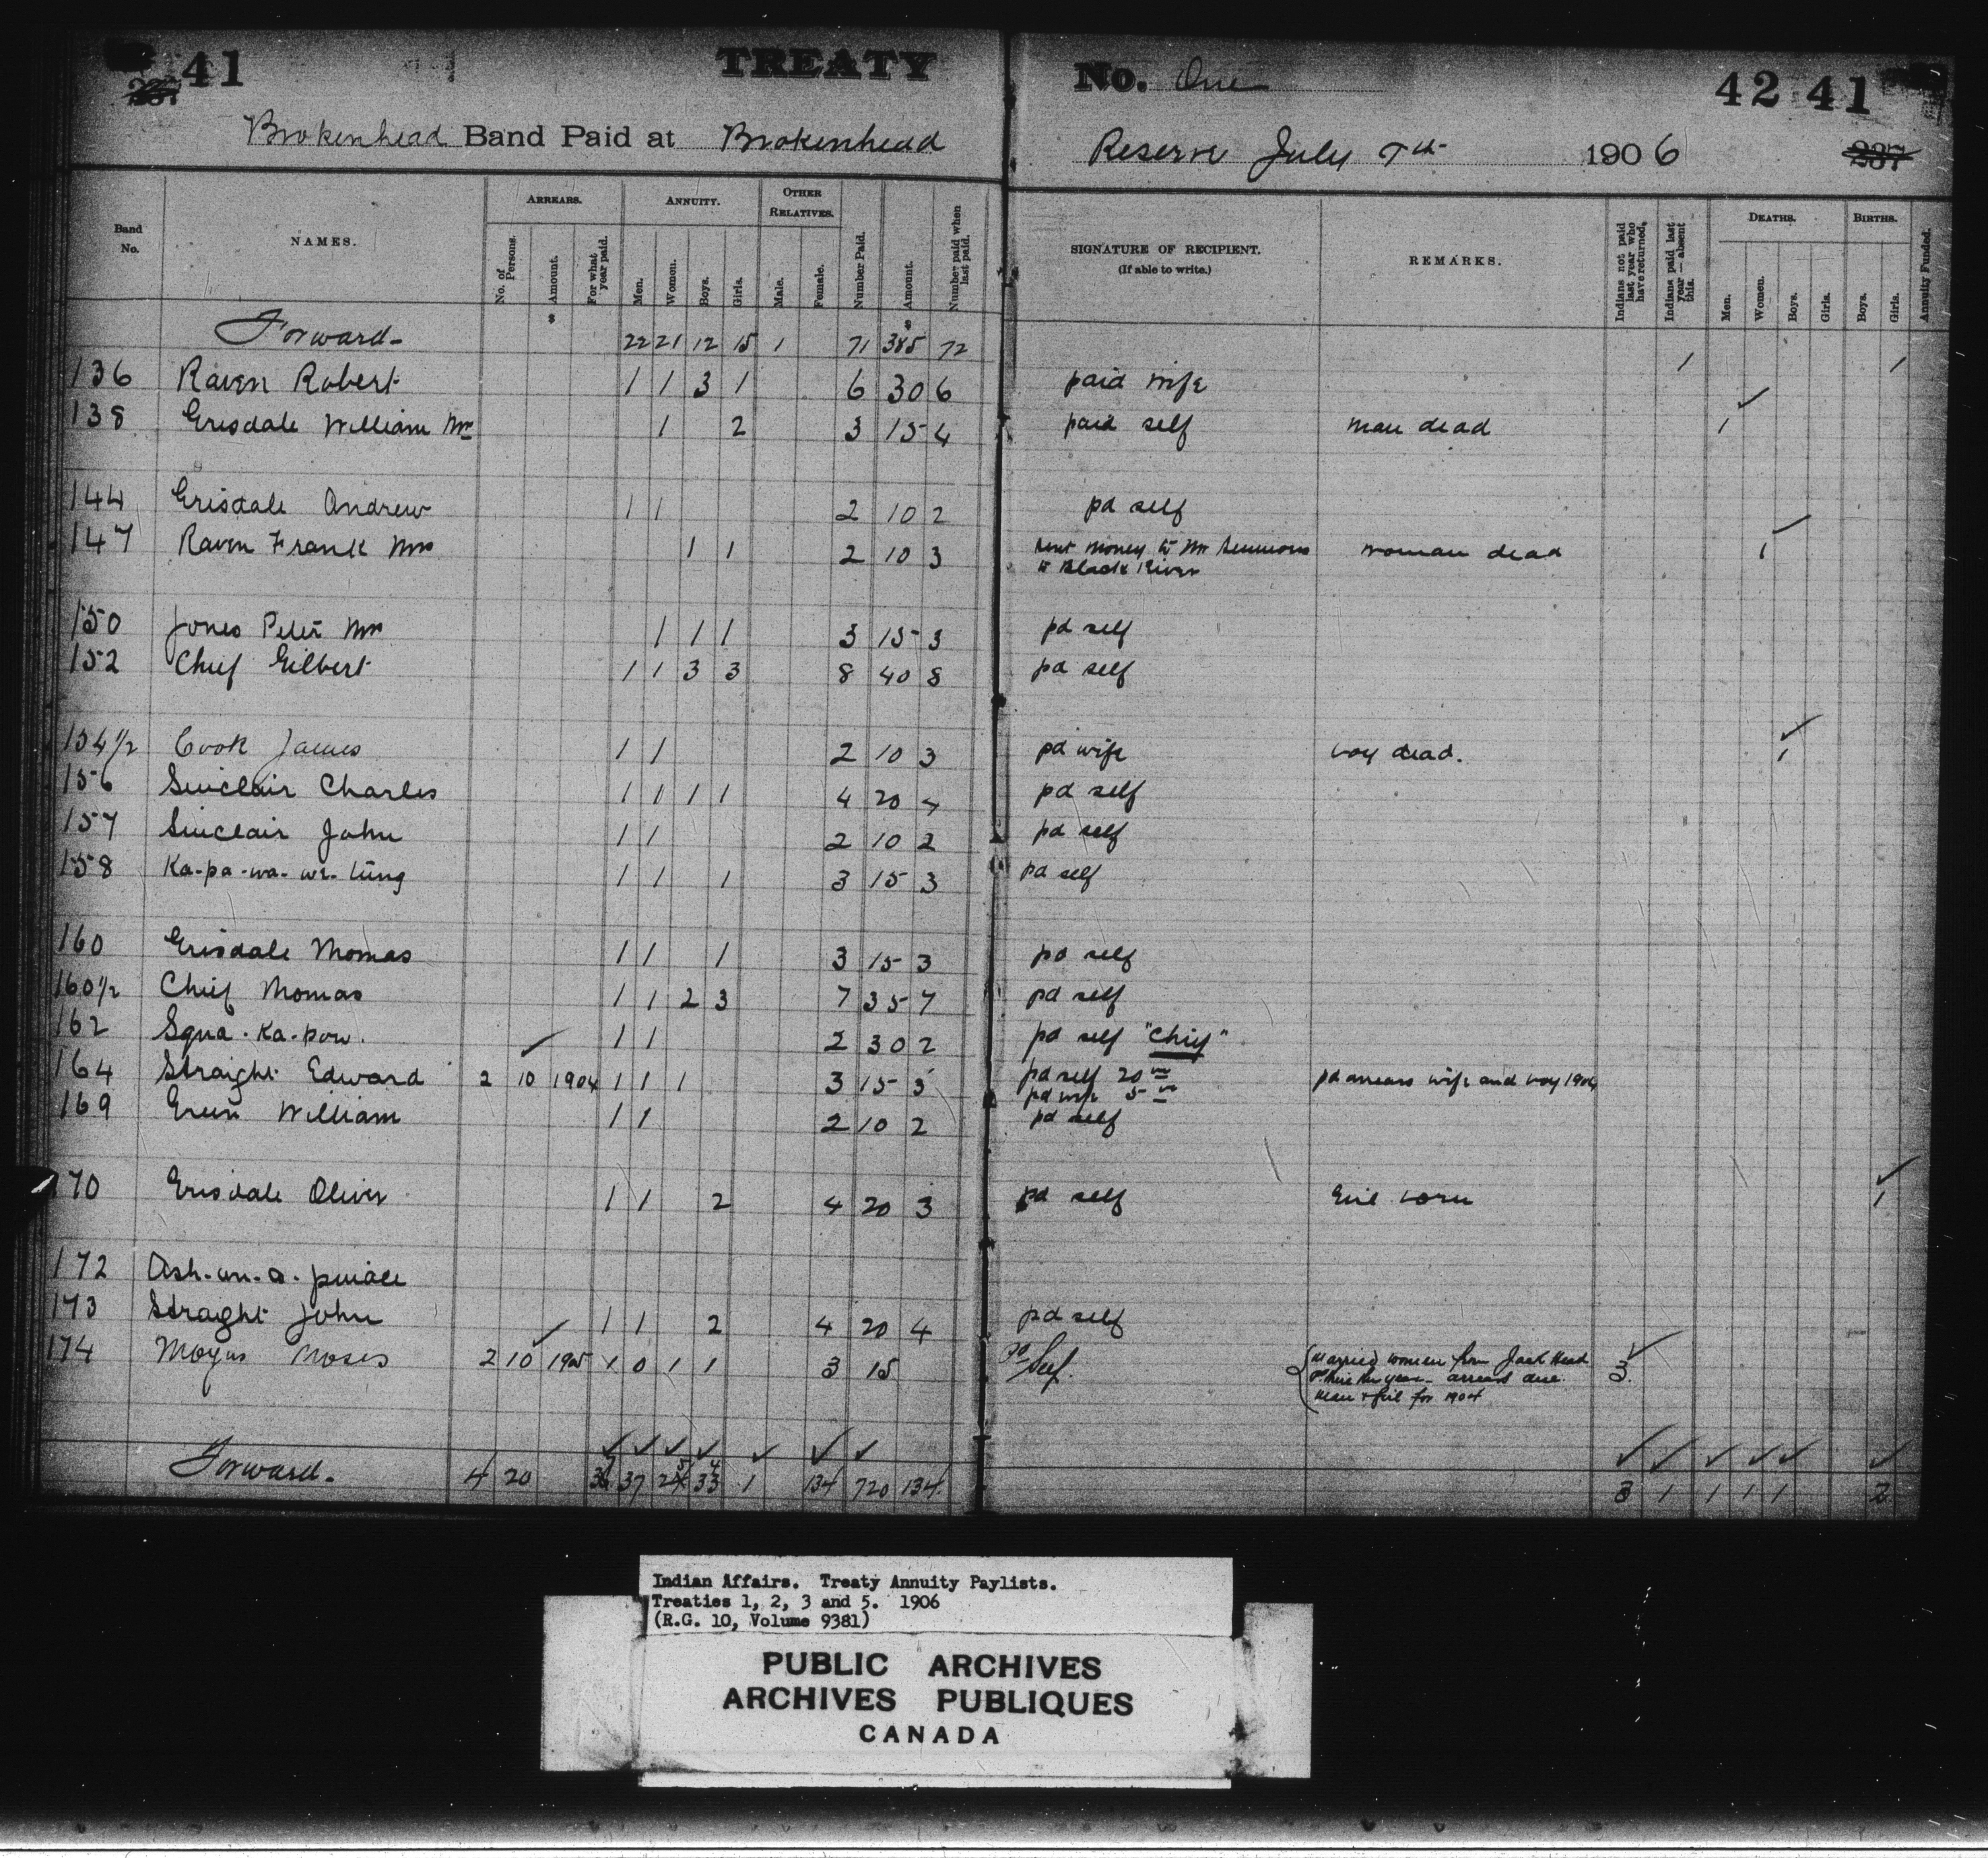 41 TREATY No. One 42 41
237 237
Brokenhead Band Paid at Brokenhead Reserve July 7th 1906
Band No. NAMES. ARREARS. No. of Persons. Amount. For what year paid. ANNUITY. Men. Women. Boys. Girls. OTHER RELATIVES. Male. Female. Number Paid. Amount. Number paid when last paid. SIGNATURE OF RECIPIENT. (If able to write.) REMARKS. Indians not paid last year who have returned, Indians paid last year — absent this. DEATHS. Men. Women. Boys. Girls. BIRTHS. Boys. Girls. Annuity Funded.
Forward- 22 21 12 15 1 71 $385 72 1 1
136 Raven Robert 1 1 3 1 6 30 6 paid wife
138 Grisdale William Mrs 1 2 3 15 4 paid self man dead 1
144 Grisdale Andrew 1 1 2 10 2 pd self
147 Raven Frank Mrs 1 1 2 10 3 sent money to Mr Semmons woman dead 1
to Black River
150 Jones Peter Mrs 1 1 1 3 15 3 pd self
152 Chief Gilbert 1 1 3 3 8 40 8 pd self
154½ Cook James 1 1 2 10 3 pd wife boy dead. 1
156 Sinclair Charles 1 1 1 1 4 20 4 pd self
157 Sinclair John 1 1 2 10 2 pd self
158 Ka-pa-wa-we-tung 1 1 1 3 15 3 pd self
160 Grisdale Thomas 1 1 1 3 15 3 pd self
160½ Chief Thomas 1 1 2 3 7 35 7 pd self
162 Squa-ka-pow. 1 1 2 30 2 pd self "Chief"
164 Straight Edward 2 10 1904 1 1 1 3 15 3 pd self 20 pd arrears wife and boy 1904
pd wife 5
169 Green William 1 1 2 10 2 pd self
170 Grisdale Oliver 1 1 2 4 20 3 pd self Girl born 1
172 Ash-un-a-
173 Straght John 1 1 2 4 20 4 pd self
174 Moyas Moses 2 10 1905 1 0 1 1 3 15 pd Self. Married women from Jack Head 3.
this year- arrears due.
Man & Girl for 1904
Forward. 4 20 36 37 25 34 1 134 720 134 3 1 1 1 1 2
Indian Affairs. Treaty Annuity Paylists.
Treaties 1, 2, 3 and 5. 1906
(R.G. 10, Volume 9381)
PUBLIC ARCHIVES
ARCHIVES PUBLIQUES
CANADA